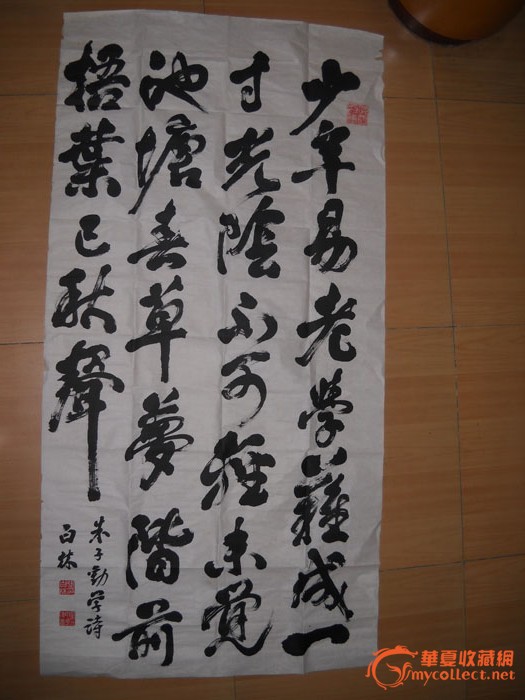 少年易老學難成一
寸光陰不可輕未覺
池塘春草夢階前
梧葉已秋聲
朱子勸学詩
林
華夏收藏網
mycollect.net